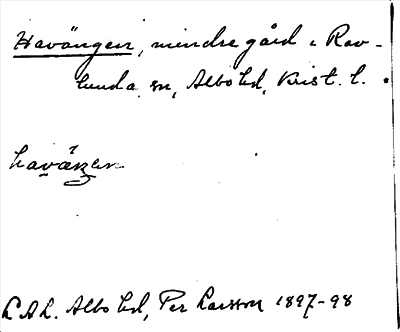 Havängen, mindre gård i Rav-
lunda sn, Albo hd, Krist. l.
haväŋen
L.A.L. Albo hd, Per Larsson 1897-98